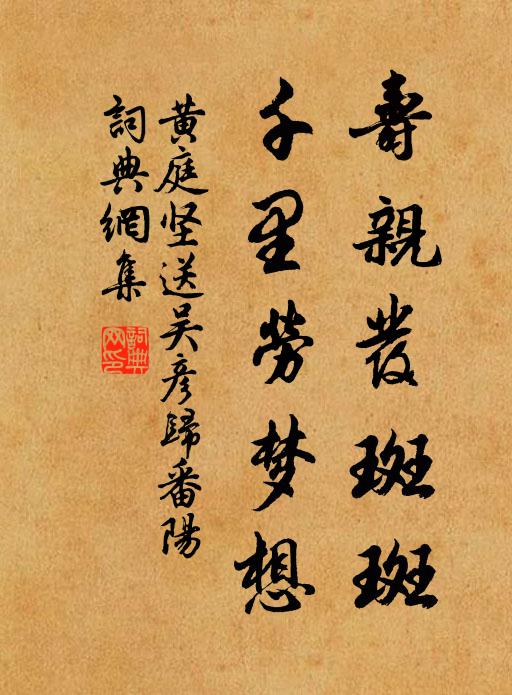 壽親發斑斑
千里勞梦想
黄庭坚送吴彦歸番陽
詞典網集
詞典
网印